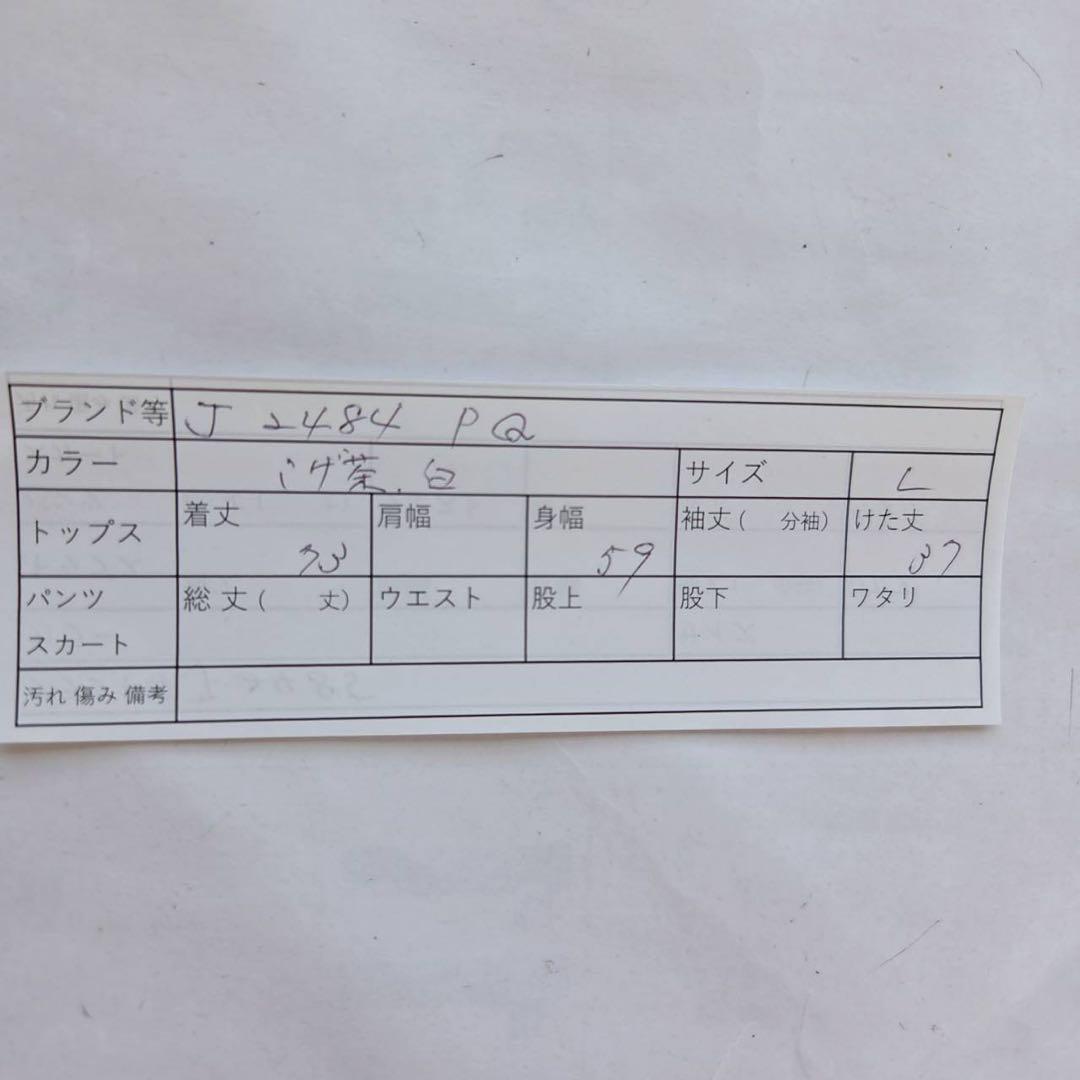 ブランド等 J 2484 PQ
カラー こげ茶、白 サイズ L
トップス 着丈 73 肩幅 身幅 59 袖丈( 分袖) けた丈 37
パンツ 総丈( 丈) ウエスト 股上 股下 ワタリ
スカート
汚れ 傷み 備考